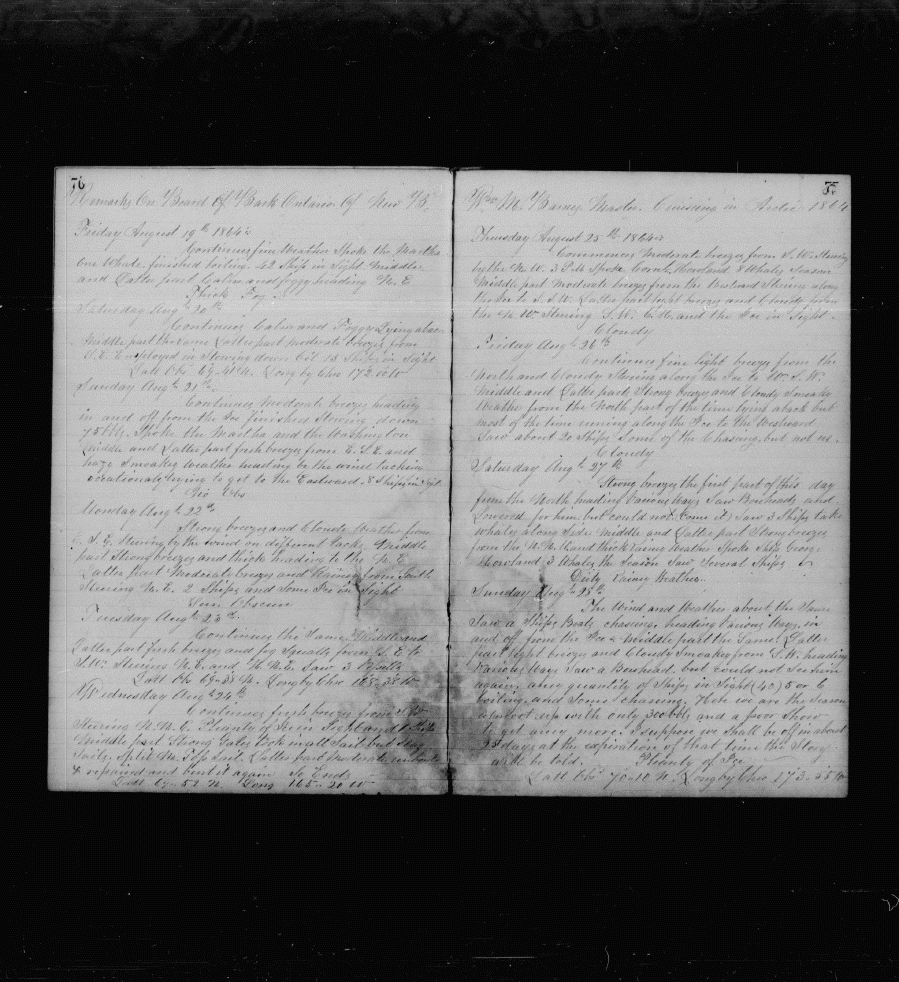 76
Remarks On Board Of Bark Ontario Of New B.
Friday August 19th 1864
Continues fine Weather Spoke the Martha
one Whale finished boiling 42 Ships in Sight Middle
and Latter part Calm and foggy heading N. E
Thick Fog
Saturday Aug 20th
Continues Calm and Foggy Lying aback
Middle part the same Latter part moderate breezes from
employed in Stowing down Oil 15 Ships in Sight
Latt Obs 69 41 N. Long by Chro 172 00 W
Sunday Aug 21st
Continues moderate breezes heading
in and off from the Ice finished Stowing down
75 bbls. Spoke the Martha and the Washington
Middle and Latter part fresh breezes from E. S. E. and
haze Smokey Weather heading by the wind tacking
occationaly trying to get to the Eastward. 8 Ships in Sight
No Obs
Monday Aug 22nd
Strong breezes and Cloudy Weather from
S. E. Steering by the wind on different tacks Middle
part Strong breezes and thick heading to the N. E.
Latter part Moderate breezes and Rainy from South
Steering N. E. 2 Ships and Some Ice in Sight
Sun Obscure
Tuesday Aug 23rd
Continues the Same Middle and
Latter part fresh breezes and fog Squalls from S. E. to
S. W. Steering N. E. and N. N. E. Saw 3
Latt Obs 69 38 N. Long by Chro 168 38 W
Wednesday Aug 24th
Continues fresh breezes from
Steering N. N. E. Plenty of Ice in Sight and 1 Ship
Middle part Strong Gales took in all Sail but Stay
Sails. Split M. Top Sail Latter part Moderate
& repaired and bent it again So Ends
Latt 69 52 N. Long 165 20 W
77
Wm M. Barnes Master. Cruising in Arctic 1864
Thursday August 25th 1864
Commences Moderate breezes from Steering
by the N. W. 3 P. M. Spoke Corn. Howland 8 Whales Season
Middle part moderate breezes from the Westward Steering along
the Ice to S. S. W. Latter part light breezes and Cloudy from
the N. W. Steering S. W. and the Ice in Sight
Cloudy
Friday Aug 26th
Continues fine light breezes from the
North and Cloudy Steering along the Ice to W. S. W.
Middle and Latter part Strong breezes and Cloudy Smokey
Weather from the North part of the time lying aback but
most of the time running along the Ice to the Westward
Saw about 20 Ships Some of the Chasing, but not us
Cloudy
Saturday Aug 27th
Strong breezes the first part of this day
from the North heading Various Ways Saw Bowheads and
Lowered for him but could not Come it) Saw 3 Ships take
whales along Side Middle and Latter part Strong breezes
from the N. N. E. and thick Rainy Weather Spoke Ship George
Howland 3 Whales the Season Saw Several Ships
Dirty Rainy Weather
Sunday Aug 28th
The Wind and Weather about the Same
Saw a Ships Boats chasing, heading Various Ways, in
and off from the Ice Middle part the Same. Latter
part light breezes and Cloudy Smokey from S. W. heading
Various Ways Saw a Bowhead, but Could not See him
again, any quantity of Ships in Sight (40) 5 or 6
boiling, and Some chasing. Here we are the Season
about up with only 300 bbls and a poor Show
to get any more. I suppose we shall be off in about
25 days, at the expiration of that time the Story
will be told. Plenty of Ice
Latt Obs 70 10 N. Long by Chro 173 28 W